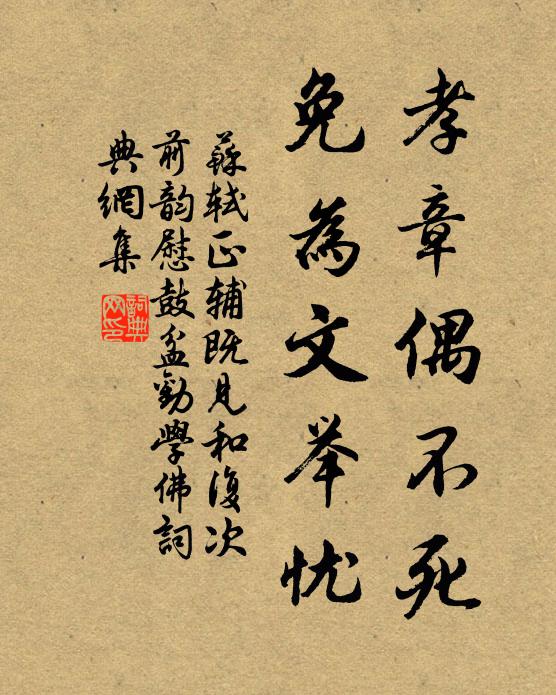 孝章偶不死
免為文举忧
蘇轼正辅既見和復次
前韵慰鼓盆勸學佛詞
典網集
詞典網印